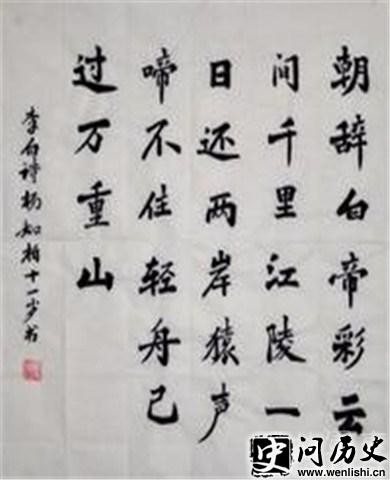 朝辞白帝彩云
间千里江陵一
日还两岸猿声
啼不住轻舟已
过万重山
李白诗杨知柏十一岁书
史问历史
www.wenlishi.cn